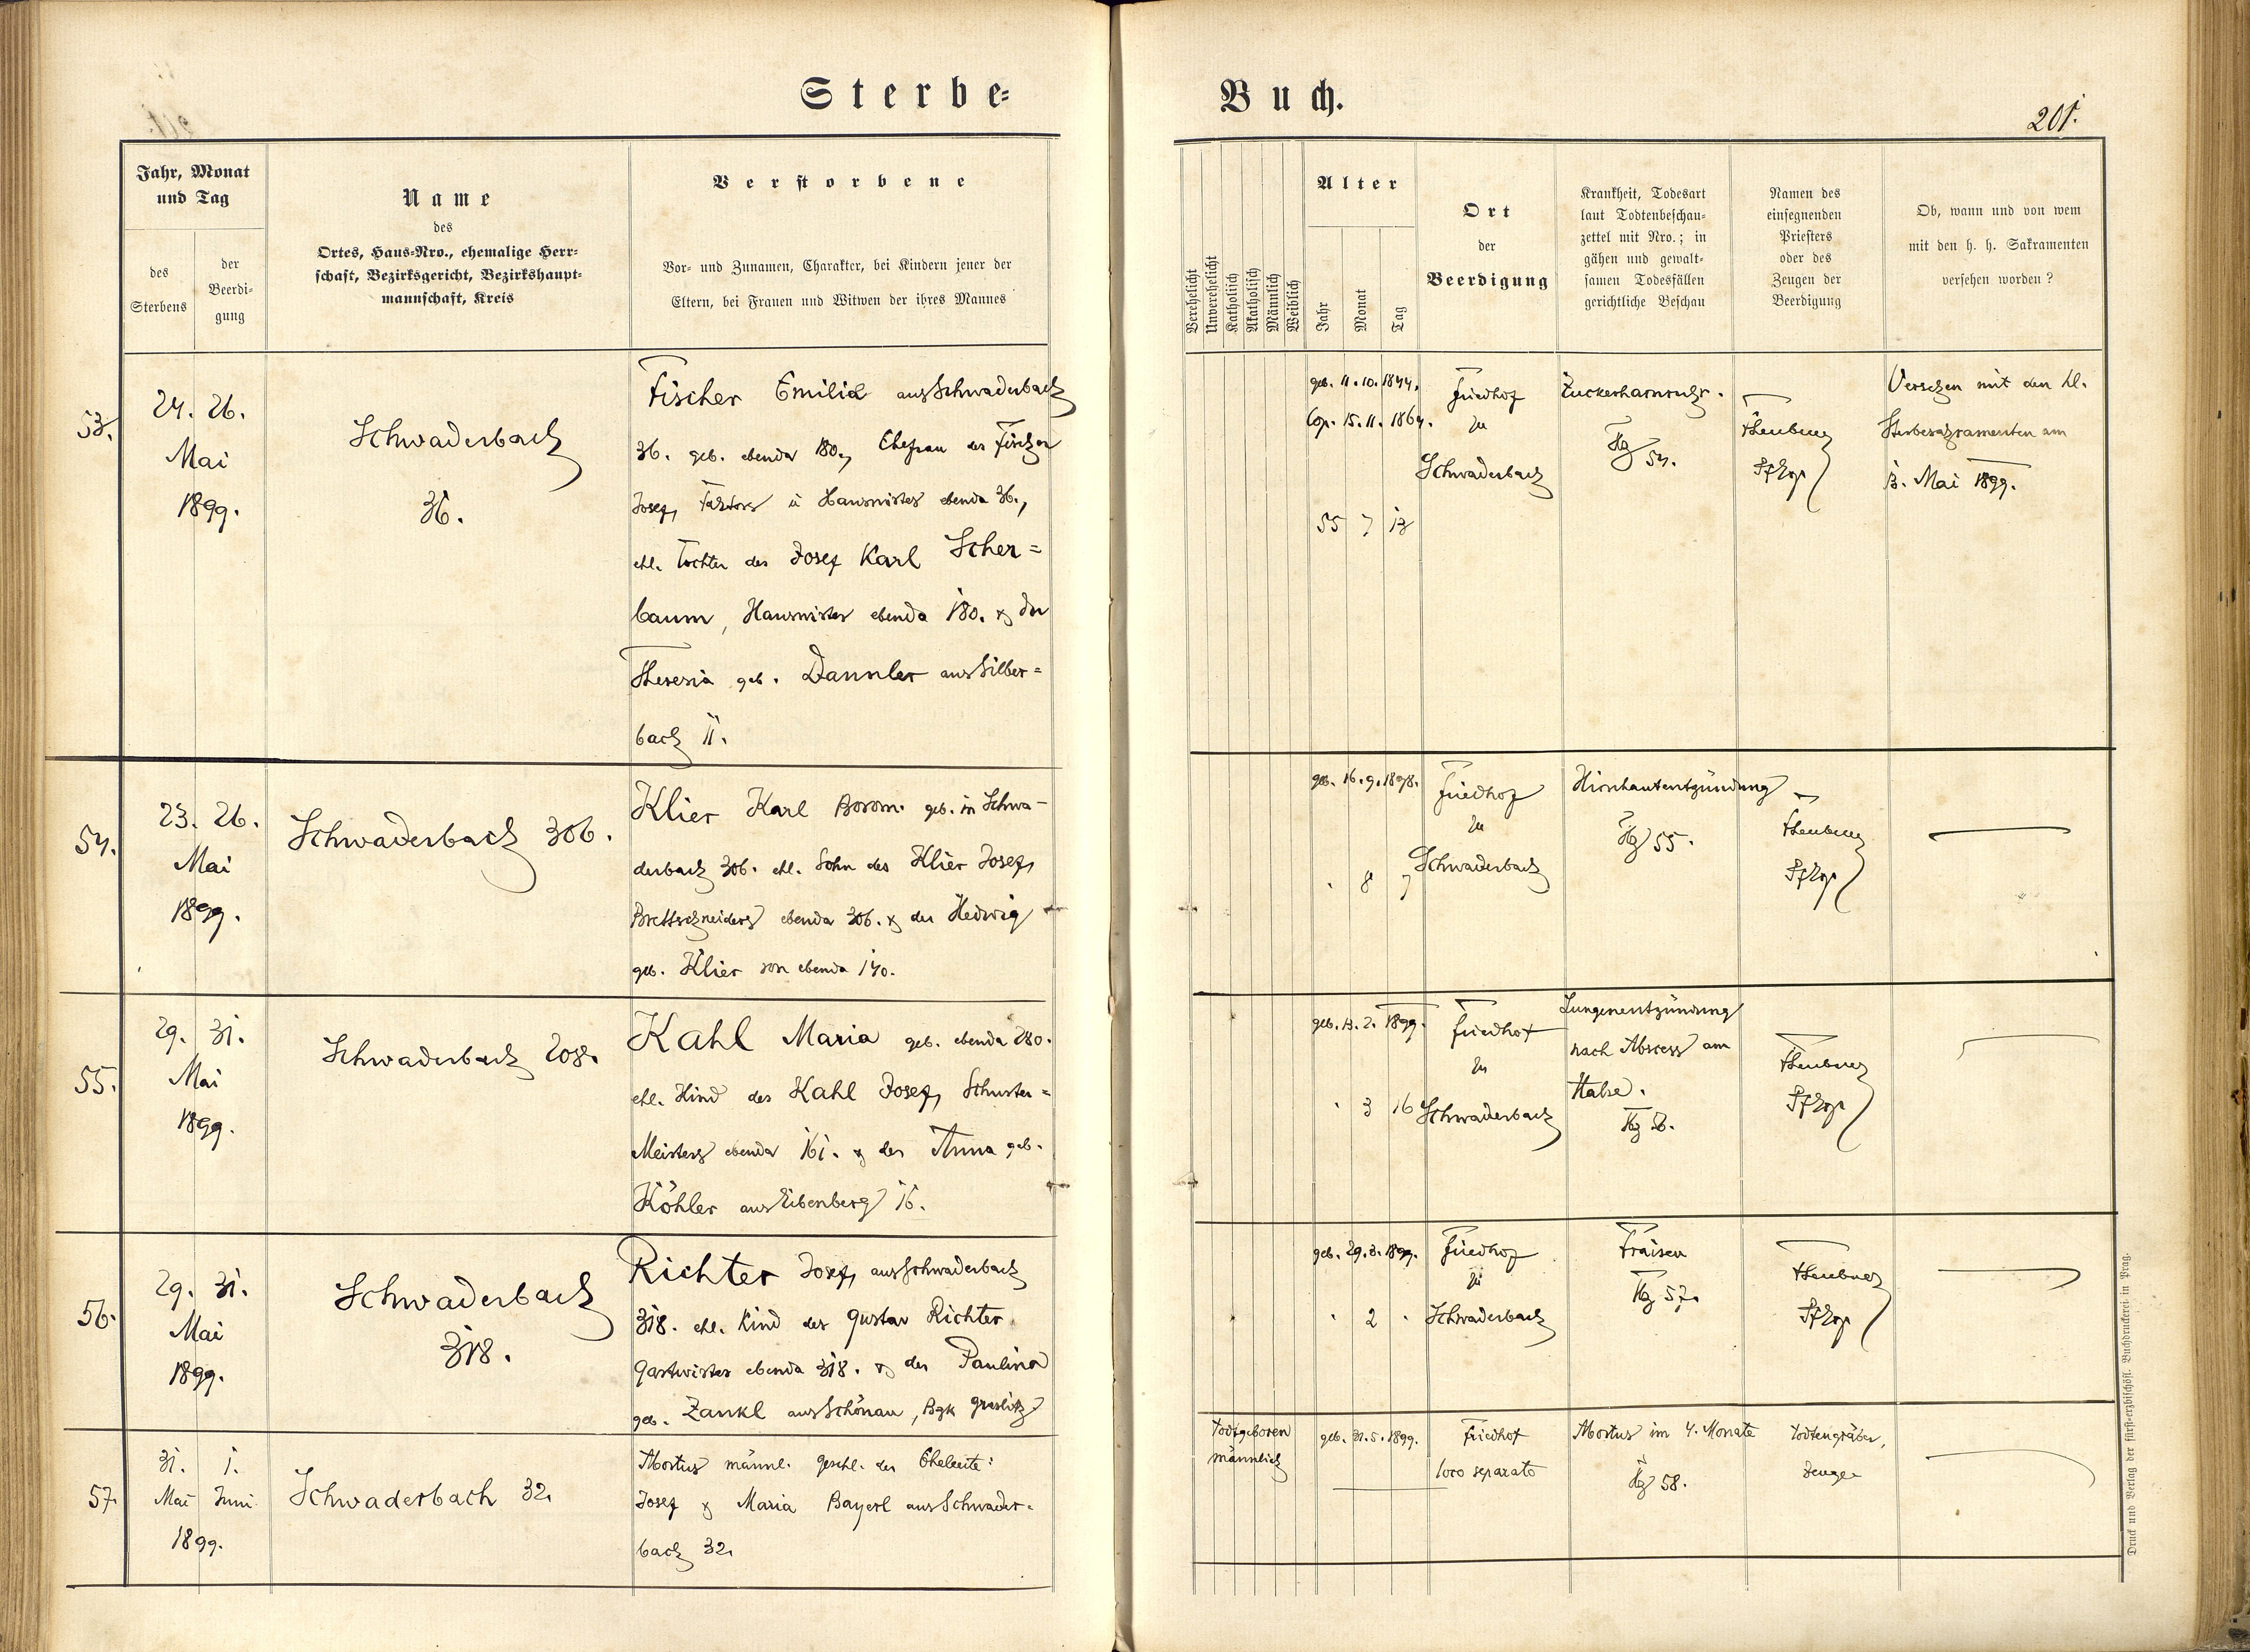 Sterbe=
Buch.
201.
Jahr, Monat
und Tag
des
Sterbens
der
Beerdi-
gung
Name
des
Ortes, Haus-Nro., ehemalige Herr-
schaft, Bezirksgericht, Bezirkshaupt-
mannschaft, Kreis
Verstorbene
Vor- und Zunamen, Charakter, bei Kindern jener der
Eltern, bei Frauen und Witwen der ihres Mannes
Verehelicht
Unverehelicht
Katholisch
Akatholisch
Männlich
Weiblich
Alter
Jahr
Monat
Tag
Ort
der
Beerdigung
Krankheit, Todesart
laut Todtenbeschau-
zettel mit Nro.; in
gähen und gewalt-
samen Todesfällen
gerichtliche Beschau
Namen des
einsegnenden
Priesters
oder des
Zeugen der
Beerdigung
Ob, wann und von wem
mit den h. h. Sakramenten
versehen worden?
53.
24. 26.
Mai
1899.
Schwaderbach
36.
Fischer Emilia aus Schwaderbach
36. geb. ebenda 180., Ehefrau des Fischer
Josef, Faktors u Hausmistes ebenda 36.,
ehl. Tochter des Josef Karl Scher=
baum, ebenda 180. & der
Theresia geb. Dannler aus Silber=
bach 11.
geb. 11.10.1844.
Cop. 15.11.1864.
55 7 13
Friedhof
zu
Schwaderbach
Zuckerharnruhr.
54.
Versehen mit den hl.
Sterbesakramenten am
13. Mai 1899.
54.
23. 26.
Mai
1899.
Schwaderbach 306.
Klier Karl Borom. geb. in Schwa-
derbach 306. ehl. Sohn des Klier Josef,
Brettschneiders ebenda 306. & der Hedwig
geb. Klier von ebenda 140.
geb. 16.9.1898.
8 7
Friedhof
zu
Schwaderbach
Hirnhautentzündung
55.
55.
29. 31.
Mai
1899.
Schwaderbach 208.
Kahl Maria geb. ebenda 280.
ehl. Kind des Kahl Josef, Schuster=
Meisters ebenda 161. & der Anna geb.
Köhler aus Eibenberg 16.
geb. 13.2.1899.
3 16
Friedhof
zu
Schwaderbach
Lungenentzündung
nach Abscess am
Halse.
56.
56.
29. 31.
Mai
1899.
Schwaderbach
318.
Richter Josef, aus Schwaderbach
318. ehl. Kind des Gustav Richter
Gastwirtes ebenda 318. & der Paulina
geb. Zankl aus Schönau, Bgk Graslitz
geb. 29.3.1899.
2
Friedhof
zu
Schwaderbach
Fraisen
57.
57.
31. 1.
Mai Juni
1899.
Schwaderbach 32.
Mortus männl. Geschl. der Eheleute:
Josef & Maria Bayerl aus Schwader-
bach 32.
Todtgeboren
männlich
geb. 31.5.1899.
Friedhof
loco separato
Mortus im 4. Monate
58.
Todtengräber,
Zeuge
Druck und Verlag der fürst-erzbischöfl. Buchdruckerei in Prag.